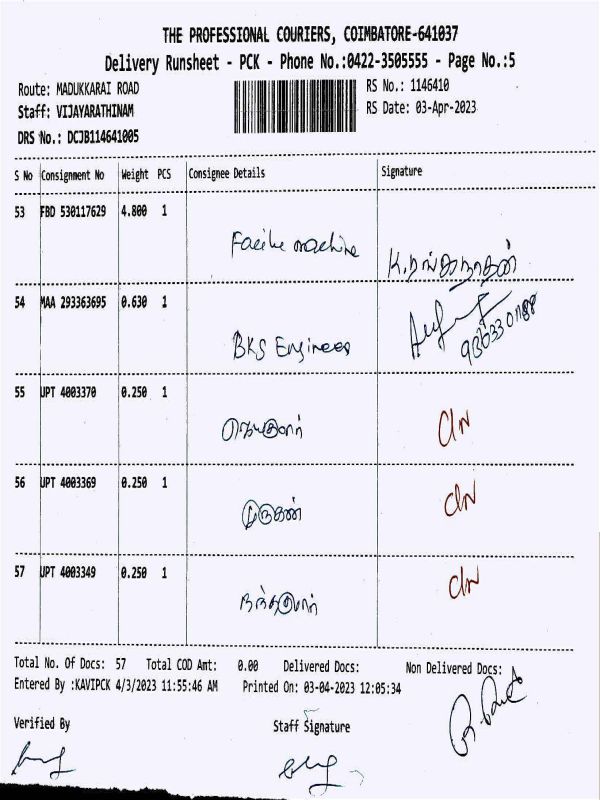 THE PROFESSIONAL COURIERS, COIMBATORE-641037
Delivery Runsheet - PCK - Phone No.:0422-3505555 - Page No.:5
Route: MADUKKARAI ROAD
RS No.: 1146410
Staff: VIJAYARATHINAM
RS Date: 03-Apr-2023
DRS No.: DCJB114641005
S No Consignment No Weight PCS Consignee Details Signature
53 FBD 530117629 4.800 1
machine
K. ரங்கநாதன்
54 MAA 293363695 0.630 1
BKS Engineer
55 UPT 4003370 0.250 1
56 UPT 4003369 0.250 1
முருகன்
57 UPT 4003349 0.250 1
நந்தகுமார்
Total No. Of Docs: 57 Total COD Amt: 0.00 Delivered Docs: Non Delivered Docs:
Entered By :KAVIPCK 4/3/2023 11:55:46 AM Printed On: 03-04-2023 12:05:34
Verified By Staff Signature